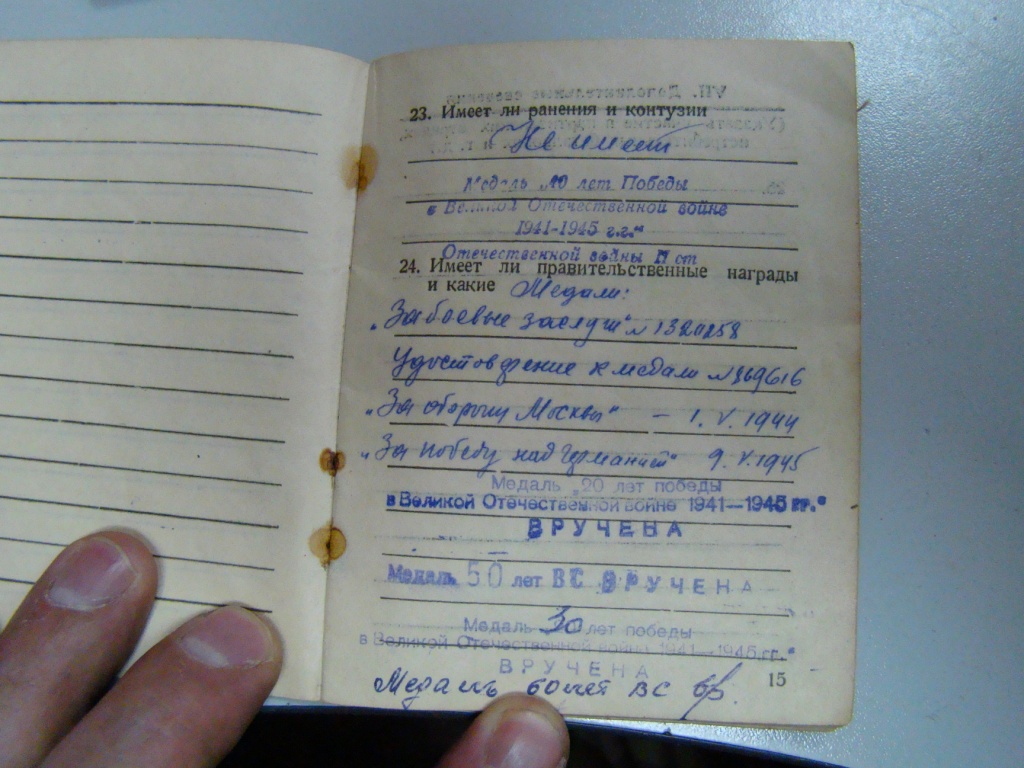 23. Имеет ли ранения и контузии
Не имеет
Медаль 40 лет Победы
в Великой Отечественной войне
1941-1945 г.г."
Отечественной войны II ст
24. Имеет ли правительственные награды
и какие Медали:
„За боевые заслуги" №
Удостоверение к медали №
„За оборону Москвы" – 1. V. 1944
„За победу над Германией" 9. V. 1945
Медаль „20 лет победы
в Великой Отечественной войне 1941—1945 гг."
ВРУЧЕНА
Медаль 50 лет ВС ВРУЧЕНА
Медаль 30 лет победы
в Великой Отечественной войне 1941—1945 гг."
ВРУЧЕНА
15
Медаль 60 лет ВС вр.